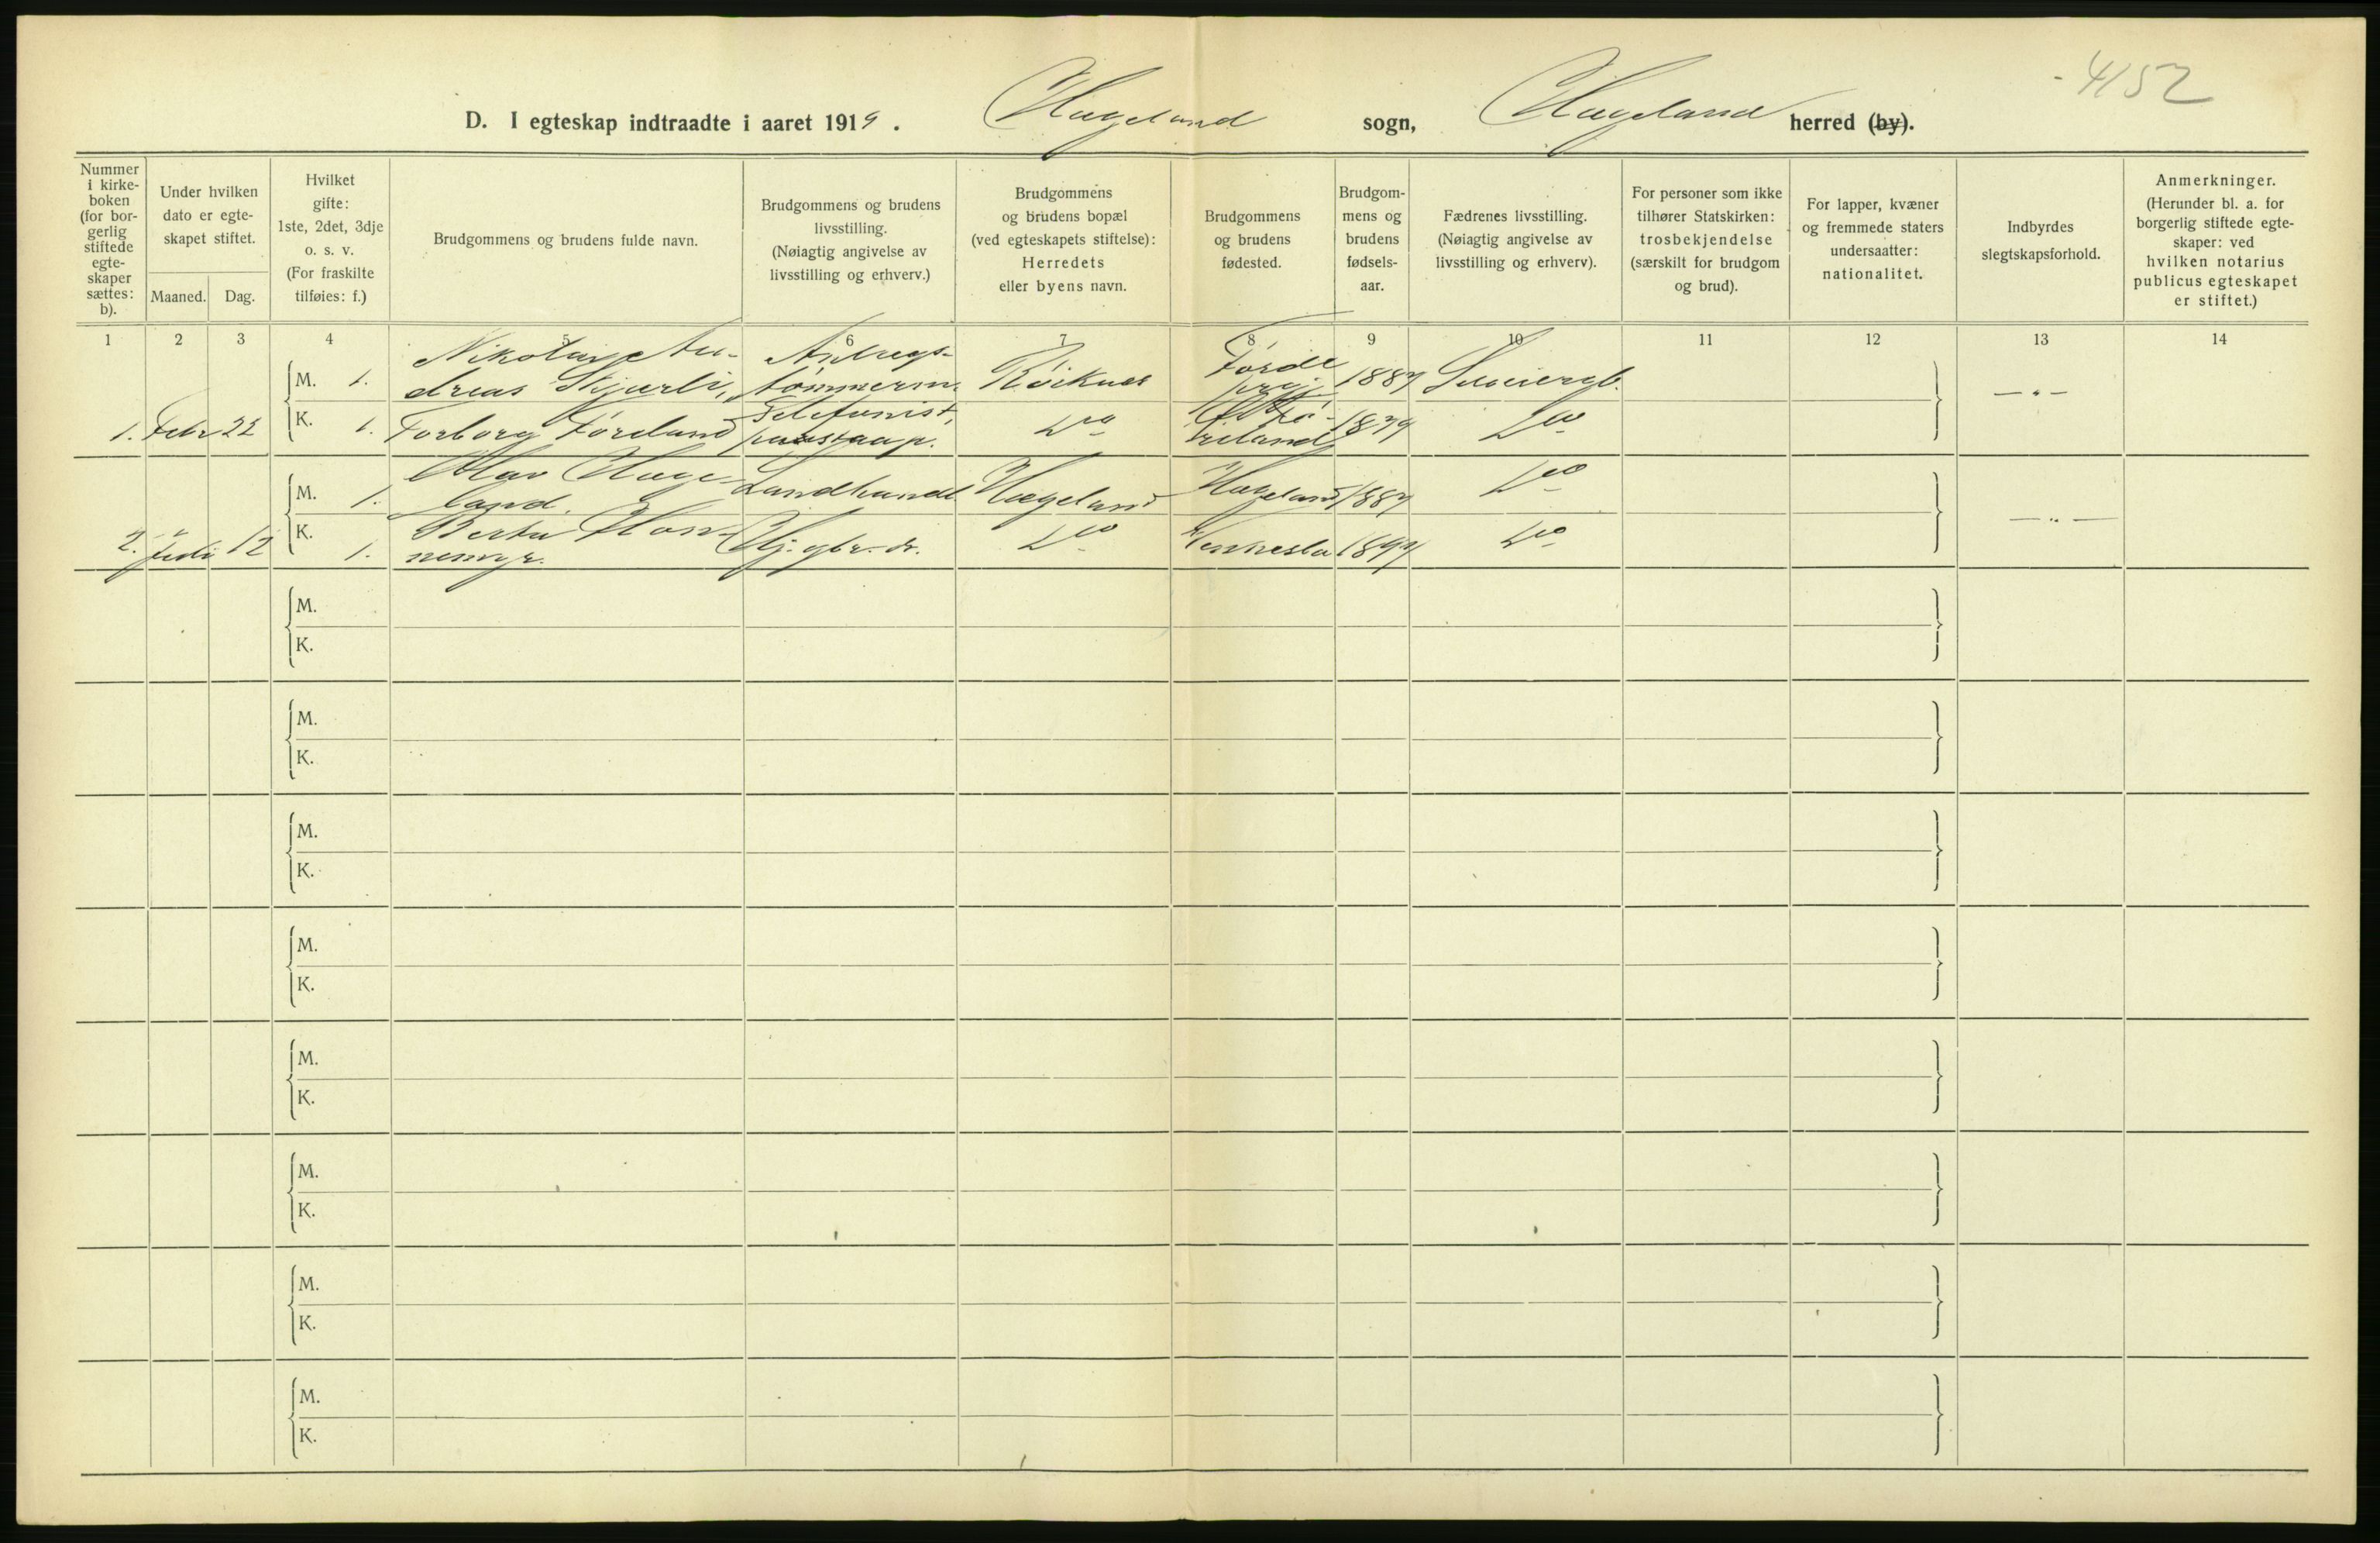 4152
D. I egteskap indtraadte i aaret 1919. Hægeland sogn, Hægeland herred (by).
Nummer i kirke-boken (for bor-gerlig stiftede egte-skaper sættes: b).
Under hvilken dato er egte-skapet stiftet.
Maaned. Dag.
Hvilket gifte: 1ste, 2det, 3dje o. s. v. (For fraskilte tilføies: f.)
Brudgommens og brudens fulde navn.
Brudgommens og brudens livsstilling. (Nøiagtig angivelse av livsstilling og erhverv.)
Brudgommens og brudens bopæl (ved egteskapets stiftelse): Herredets eller byens navn.
Brudgommens og brudens fødested.
Brudgom-mens og brudens fødsels-aar.
Fædrenes livsstilling. (Nøiagtig angivelse av livsstilling og erhverv).
For personer som ikke tilhører Statskirken: trosbekjendelse (særskilt for brudgom og brud).
For lapper, kvæner og fremmede staters undersaatter: nationalitet.
Indbyrdes slegtskapsforhold.
Anmerkninger. (Herunder bl. a. for borgerlig stiftede egte-skaper: ved hvilken notarius publicus egteskapet er stiftet.)
1 2 3 4 5 6 7 8 9 10 11 12 13 14
Nikolay An- Anlegs- Førde
M. 1. dreas Skjærli, tømmerm. Røiknes 1887 Selveiergb. — " —
1. Febr 22 K. 1. Torborg Føreland Telefonist, do 1879 do
Olav Hæge-
M. 1. land. Landhandl. Hægeland Hægeland 1887 do
Berta Hon-
2. Juli 12 K. 1. nemyr. Hj. gbr. dr. do Vennesla 1897 do — " —
M.
K.
M.
K.
M.
K.
M.
K.
M.
K.
M.
K.
M.
K.
M.
K.